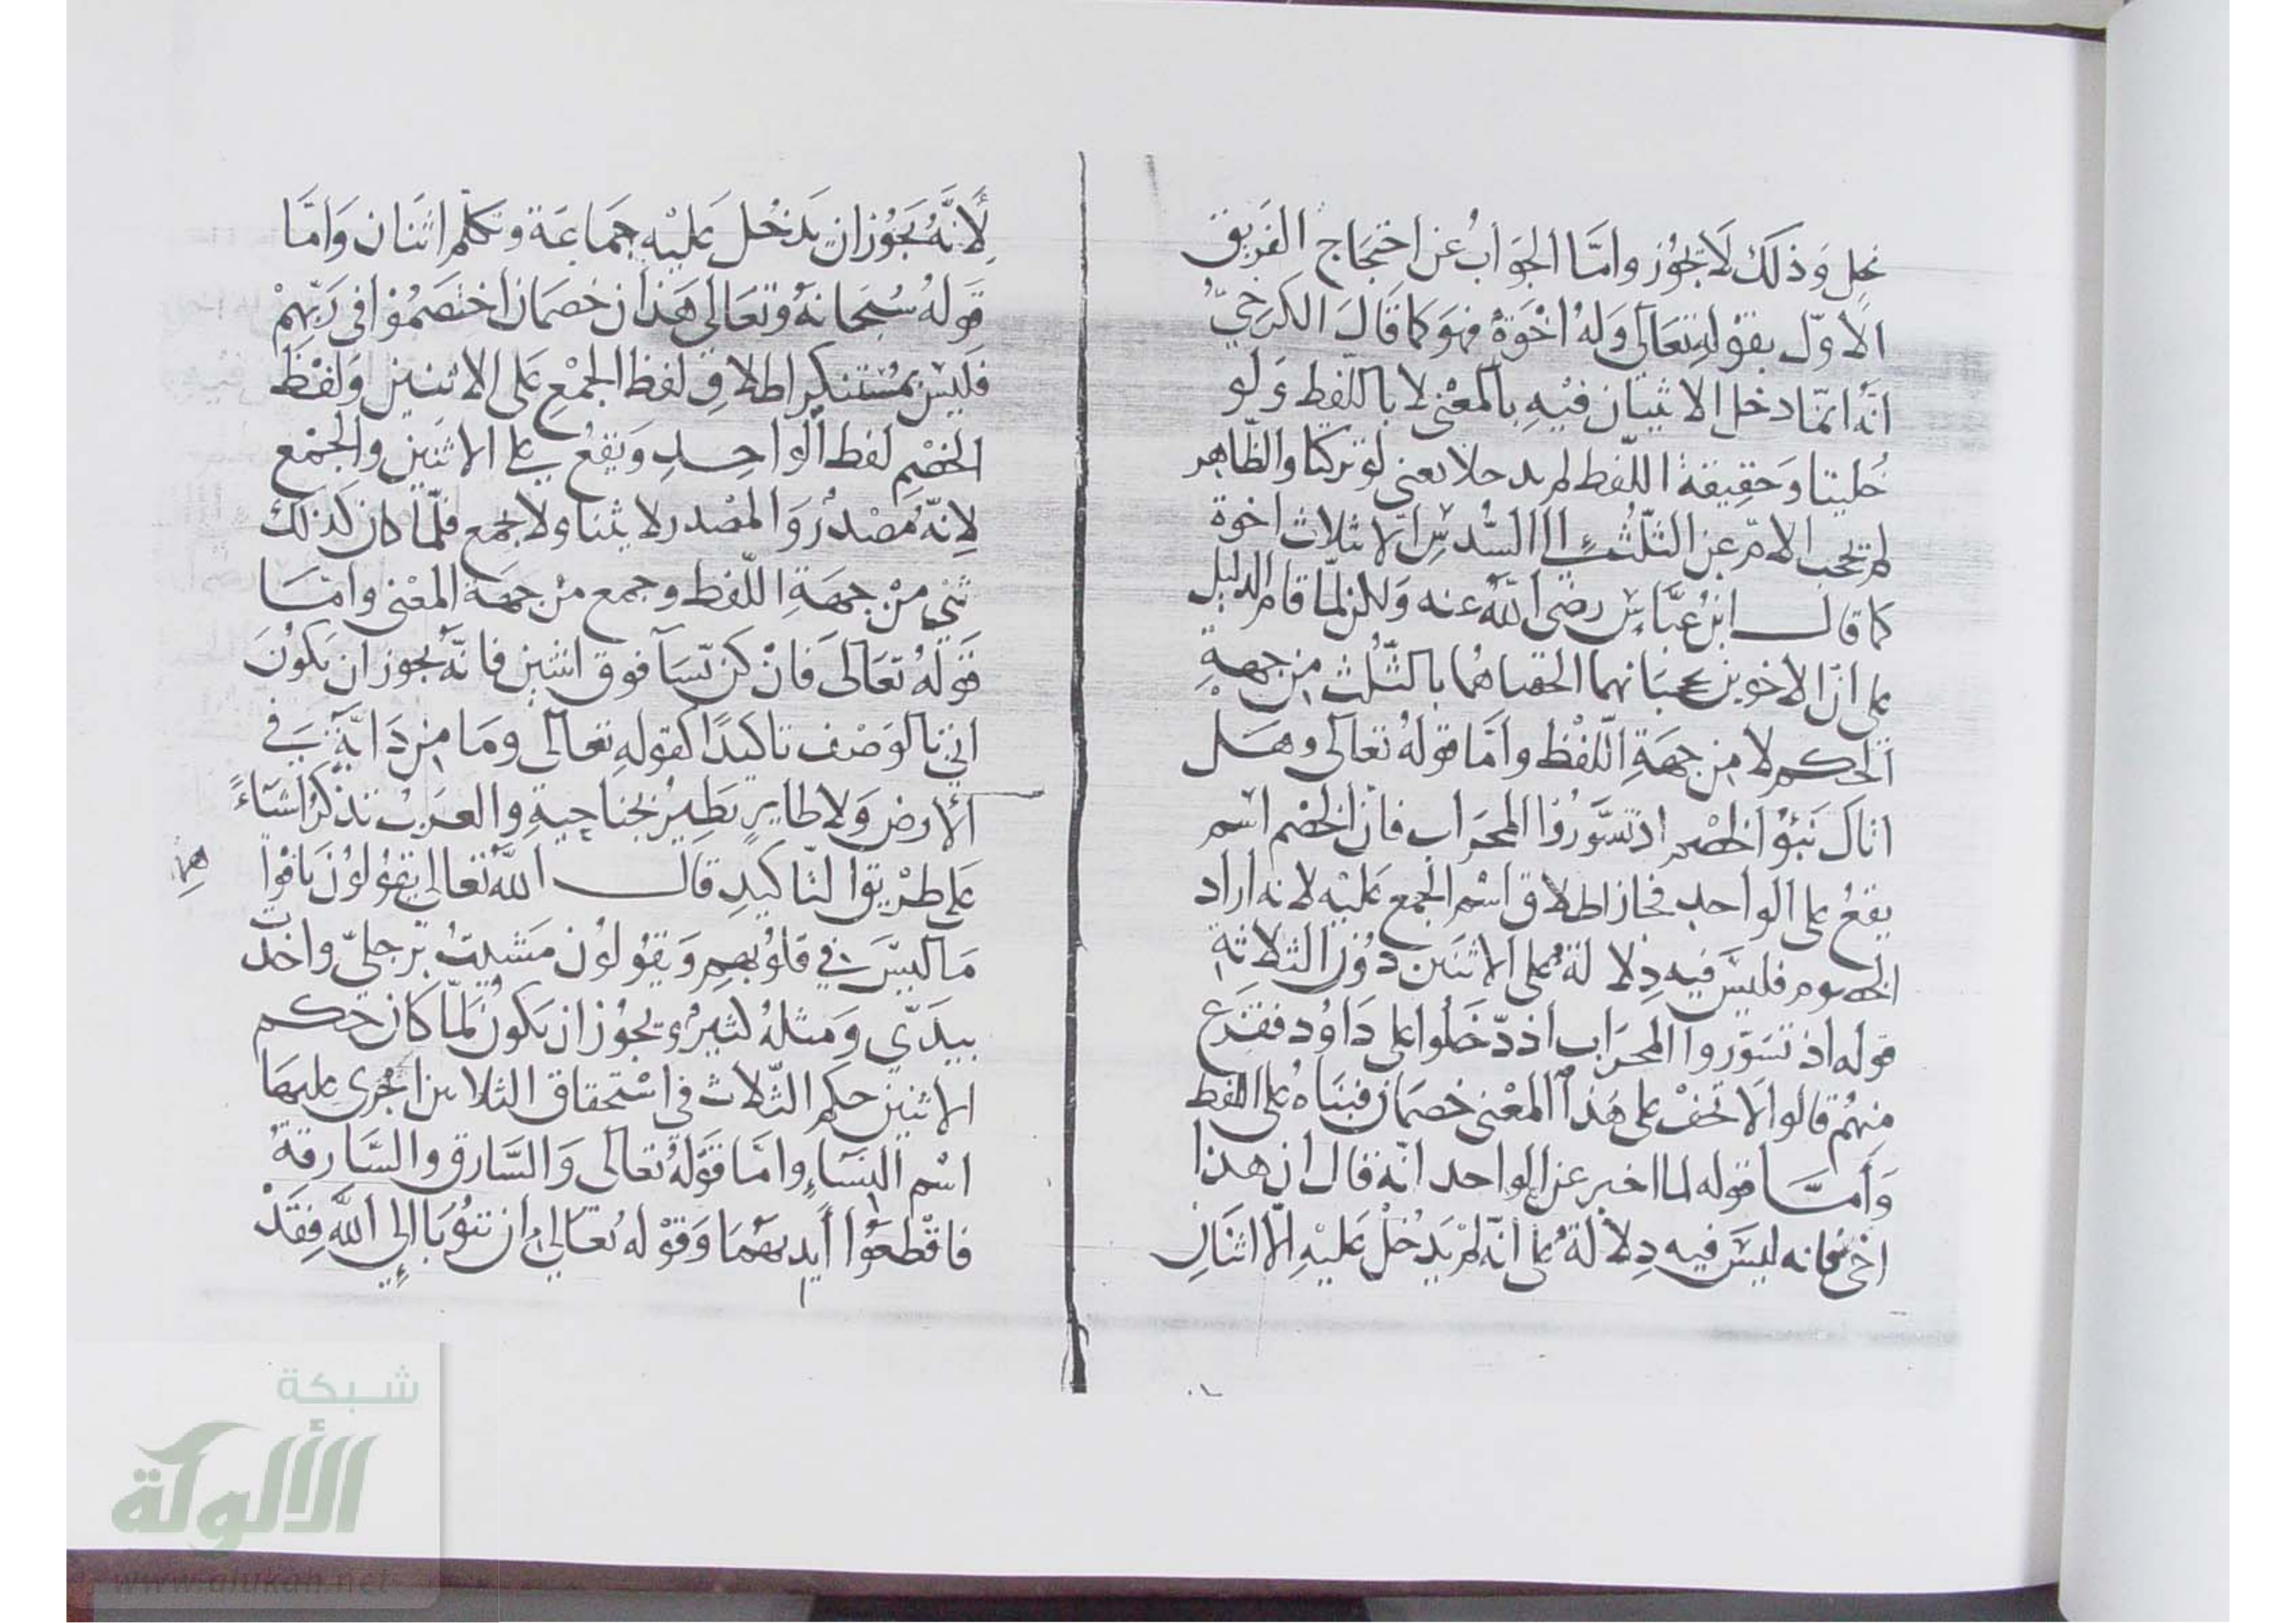 نحل وَذلك لَا يجُوز وامّا الجَوابُ عن احتجَاج الفَريق
الاوّل بقوْلهِ تعَالى وَلهُ اخْوَةٌ فهوَ كما قَالَ الكرَخيّ
انّه انمّا دخل الاثنان فيْهِ بالمعْنى لا باللّفظ وَلو
خُلينا وَحَقِيقة اللّفظ لم يدخلا يعنى لو تركنا والظّاهر
لم تحجب الامّ عن الثلُث الى السُّدسِ الّا ثلاث اخوة
كما قال ابنُ عبّاس رضى اللّه عنه وَلكن لمّا قام الدليل
على انّ الاخوين يحجبانها الحقناهُما بالثّلُث من جهةِ
الحكم لا من جهَةِ اللّفْظ وامّا قوله تعَالى وهَل
اتاكَ نَبَؤا الخصْم اذ تسَّوَّرُوا المحرَاب فانّ الخصْم اسْم
يقعُ على الواحد فجاز اطلاق اسْم الجمع عَليْه لانه اراد
الخصوم فليسَ فيه دِلالة على الاثنَين دُوْن الثلاثةِ
قوله اذ تسَوّروا المحرَاب اذ دّخَلُوا على دَاوُد ففزِع
مِنهُم قالوا لَا تخفْ على هَذا المعْنى خصمَان فبنَاهُ على اللفظ
وَأمّا قوله لما اخبر عن الواحد انّه قال ان هذا
اخى فانه ليسَ فيه دِلالةٌ على انّه لمْ يَدْخُلْ عَليْهِ الّا اثنَانِ
لأنّهُ يجُوز ان يَدخُل عَليْهِ جمَاعَة وتكلم اثنَان وَامّا
قَولهُ سُبْحانهُ وتعَالى هَذان خصمَان اختصَمُوْا فى رَبّهِمْ
فَليْسَ بمُسْتنكر اطلاق لفظ الجمْع عَلى الاثنين وَلفظ
الخصْمِ لفظ الواحِدِ وَيقعُ على الاثنَين والجمْع
لِانّهُ مَصْدرٌ وَالمصْدر لا يثنا ولا يجمع فلمّا كان كذلك
ثنّى منْ جهَةِ اللّفظ وجمع منْ جهَة المعْنى وامّا
قَوله تعَالى فَانْ كنّ نّسَآ فوق اثنتين فانّه يجوز ان يكوُنَ
اتى بالوَصْف تاكيدًا كقولهِ تعَالى ومَا من دَابّةٍ فى
الأرض وَلا طايرٍ يَطِيْرُ بجناحيْهِ والعَرَبُ تذكرُ اشيَاءً
عَلى طرْيق التّاكيْدِ قال اللّه تعَالى يقوُلوُن بَافْوا
هِهِم
مَا ليسَ فى قلوُبهِم وَيقوُلوُن مَشَيْتُ برجلىّ واخَذت
بيدَىّ وَمثلهُ كثيرُ وَيجُوز ان يَكوُن لمّا كَانَ حُكم
الاثنين حكم الثّلاث فى اسْتحقاق الثلاثين اجْرى عليهمَا
اسْم النسَاءِ وامّا قَوْله تعَالى وَالسَّارق والسَّارقة
فاقْطعُوْا أَيديَهُمَا وَقوْله تعَالى ان تتوُبَا الى اللّه فقَدْ
شبكة
الألوكة
www.alukah.net